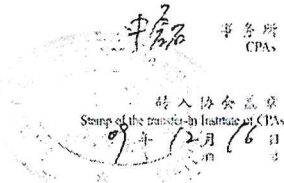 事务所
CPAs
转入协会盖章
Stamp of the transfer-in Institute of CPAs
09年12月16日